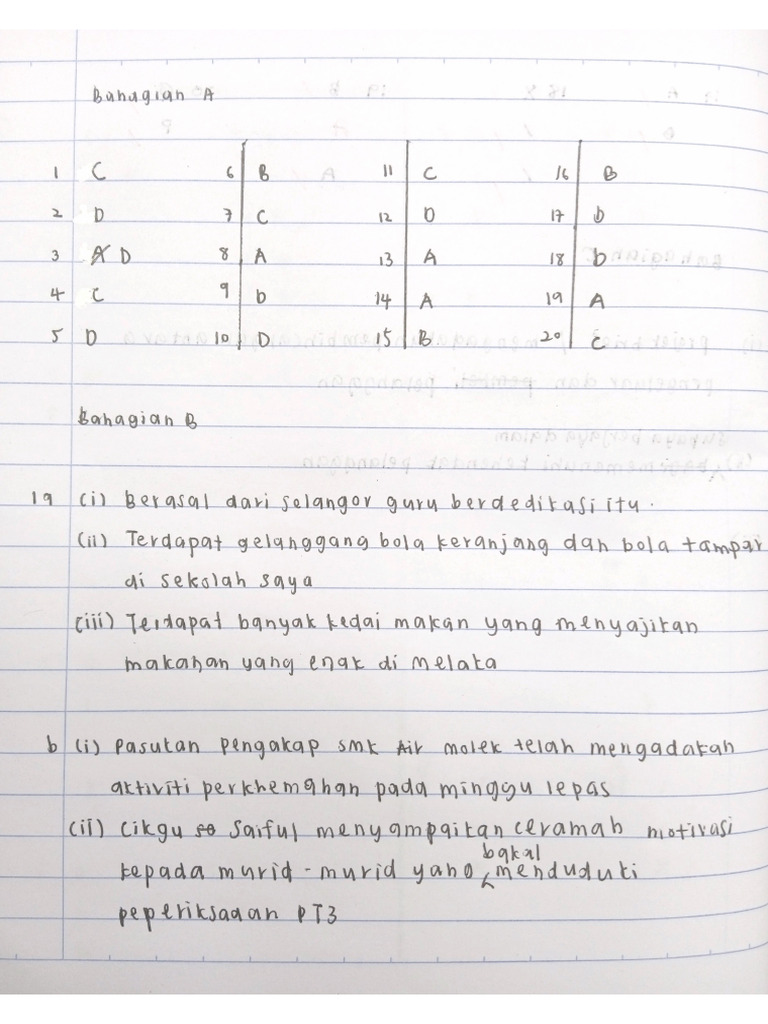 Bahagian A
1 C 6 B 11 C 16 B
2 D 7 C 12 D 17 b
3 D 8 A 13 A 18 b
4 C 9 b 14 A 19 A
5 D 10 D 15 B 20 C
Bahagian B
1a (i) Berasal dari selangor guru berdedikasi itu.
(ii) Terdapat gelanggang bola keranjang dan bola tampar
di sekolah saya
(iii) Terdapat banyak kedai makan yang menyajikan
makanan yang enak di melaka
b (i) Pasukan pengakap smk Air molek telah mengadakan
aktiviti perkhemahan pada minggu lepas
(ii) Cikgu Saiful menyampaikan ceramah motivasi
bakal
kepada murid-murid yang menduduki
peperiksaan PT3